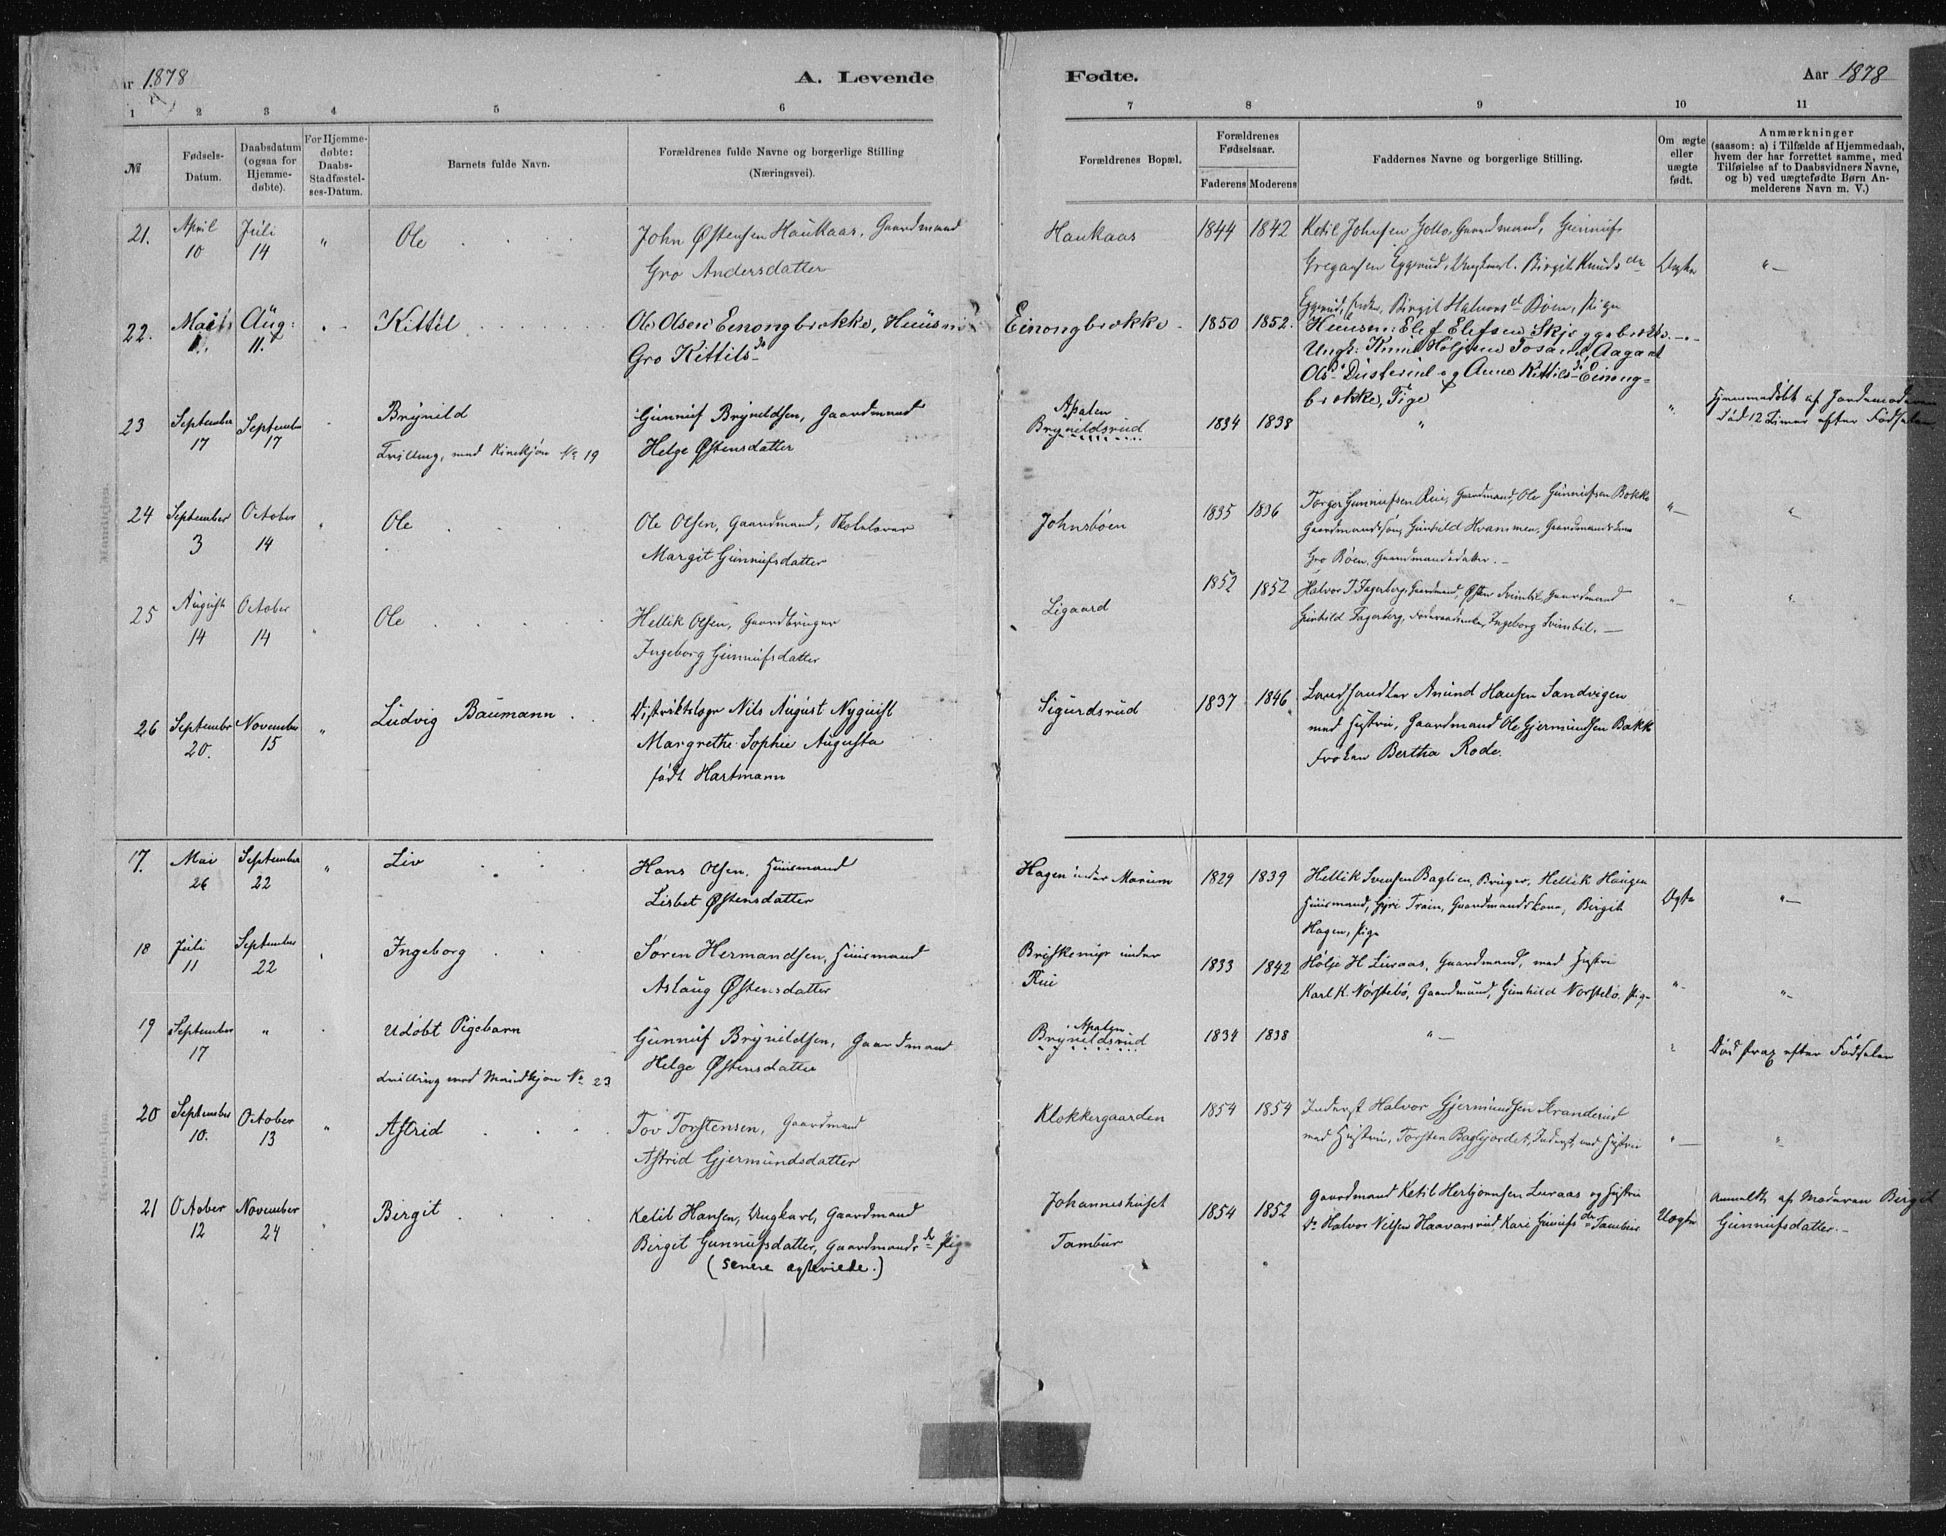 Aar 1878
A. Levende
Fødte.
Aar 1878
1 2 3 4 5 6 7 8 9 10 11
№
Fødsels-
Datum.
Daabsdatum
(ogsaa for
Hjemme-
døbte).
For Hjemme-
døbte:
Daabs-
Stadfæstel-
ses-Datum.
Barnets fulde Navn.
Forældrenes fulde Navne og borgerlige Stilling
(Næringsvei).
Forældrenes Bopæl.
Forældrenes
Fødselsaar.
Faderens Moderens
Faddernes Navne og borgerlige Stilling.
Om ægte
eller
uægte
født.
Anmærkninger
(saasom: a) i Tilfælde af Hjemmedaab,
hvem der har forrettet samme, med
Tilføielse af to Daabsvidners Navne,
og b) ved uægtefødte Børn An-
melderens Navn m. V.)
Mandkjøn.
21. April 10 Juli 14 " Ole
John Østensen Haukaas, Gaardmand
Gro Andersdatter
Haukaas 1844 1842
Ketil Johnsen Gaardmand, Gunnuf
Eggerud, Ungkarl. Birgit Knudsdr
Eggerud, Birgit Halvorsd Böen, Pige
Ægte "—
22. Marts Aug: 11. Kittil
Ole Olsen Einongbrokke, Huusm
Gro Kittilsdr
Einongbrokke 1850 1852.
Huusm: Elef Elefsen Skjeggebrokke.
Ungk: Aagaat
Olsdr Dusterud og Anne Kittilsdr Einong-
brokke, Pige
23 September 17 September 17
Brynild
Tvilling, med Kvinkjøn No 19
Gunnuf Bryneldsen, Gaardmand
Helge Østensdatter
Apalen
Bryneldsrud 1834 1838 " "
Hjemmedøbt af Jordemoderen
Død 12 Timer efter Fødselen.
24 September 3 October 14 " Ole
Ole Olsen, Gaardmand, Skolelærer
Margit Gunnufsdatter
Johnsbøen 1835 1836
Torger Gunnufsen Rui, Gaardmand, Ole Gunnufsen Bakke
Gaardmandssøn, Gunhild Gaardmandskone
Gro Böen, Gaardmandsdatter.—
"— "
25 August 14 October 14 " Ole
Hellik Olsen, Gaardbruger
Ingeborg Gunnufsdatter
Ligaard 1852 1852
Halvor T Fagerberg, Gaardmand, Østen Svimbil, Gaardmand
Gunhild Fagerberg, Ingeborg Svimbil.—
"— "
26 September 20. November 15 " Ludvig Baumann
Distriktslæge Nils August Nyquist
Margrethe Sophie Augusta
født Hartmann
Sigurdsrud 1837 1846
Landhandler Amund Hansen Sandvigen
med Hustru, Gaardmand Ole Gjermundsen Bakk
Frøken Bertha Rode.
17. Mai 26 September 22 " Liv
Hans Olsen, Huusmand
Lisbet Østensdatter
Hagen under Marum 1829 1839
Hellik Svensen Baglien, Bruger, Hellik Haugen
Huusmand, Guri Traen, Gaardmandskone, Birgit
Hagen, Pige
Ægte "—
18 Juli 11 September 22 Ingeborg
Søren Hermandsen, Huusmand
Aslaug Østensdatter
under
Rui
1833 1842
Holje H Luraas, Gaardmand, med Hustru
Karl K. Norstebö, Gaardmand, Gunhild Norstebö, Pige
"— "—
19 September 17 " Udøbt Pigebarn
Tvilling med Mandkjøn No 23
Gunnuf Bryneldsen, Gaardmand
Helge Østensdatter
Apalen
Bryneldsrud 1834 1838 "— "
Død strax efter Fødselen
20 September 10. October 13 " Astrid
Tov Torstensen, Gaardmand
Astrid Gjermundsdatter
Klokkergaarden 1854 1854
Inderst Halvor Gjermundsen
med Hustru, Torsten Bagljordet, Inderst, med Hustru
"— "
21 October 12 November 24 " Birgit
Ketil Hansen, Ungkarl, Gaardmand
Birgit Gunnufsdatter, Gaardmandsdr Pige
(senere ægteviede.)
Johanneshuset
Tambur
1854 1852
Gaardmand Ketil Herbjørnsen Luraas og Hustru
Do Halvor Nilsen Haavarsrud, Kari Tambur
Uægte
Anmeldt af Moderen Birgit
Gunnufsdatter.—